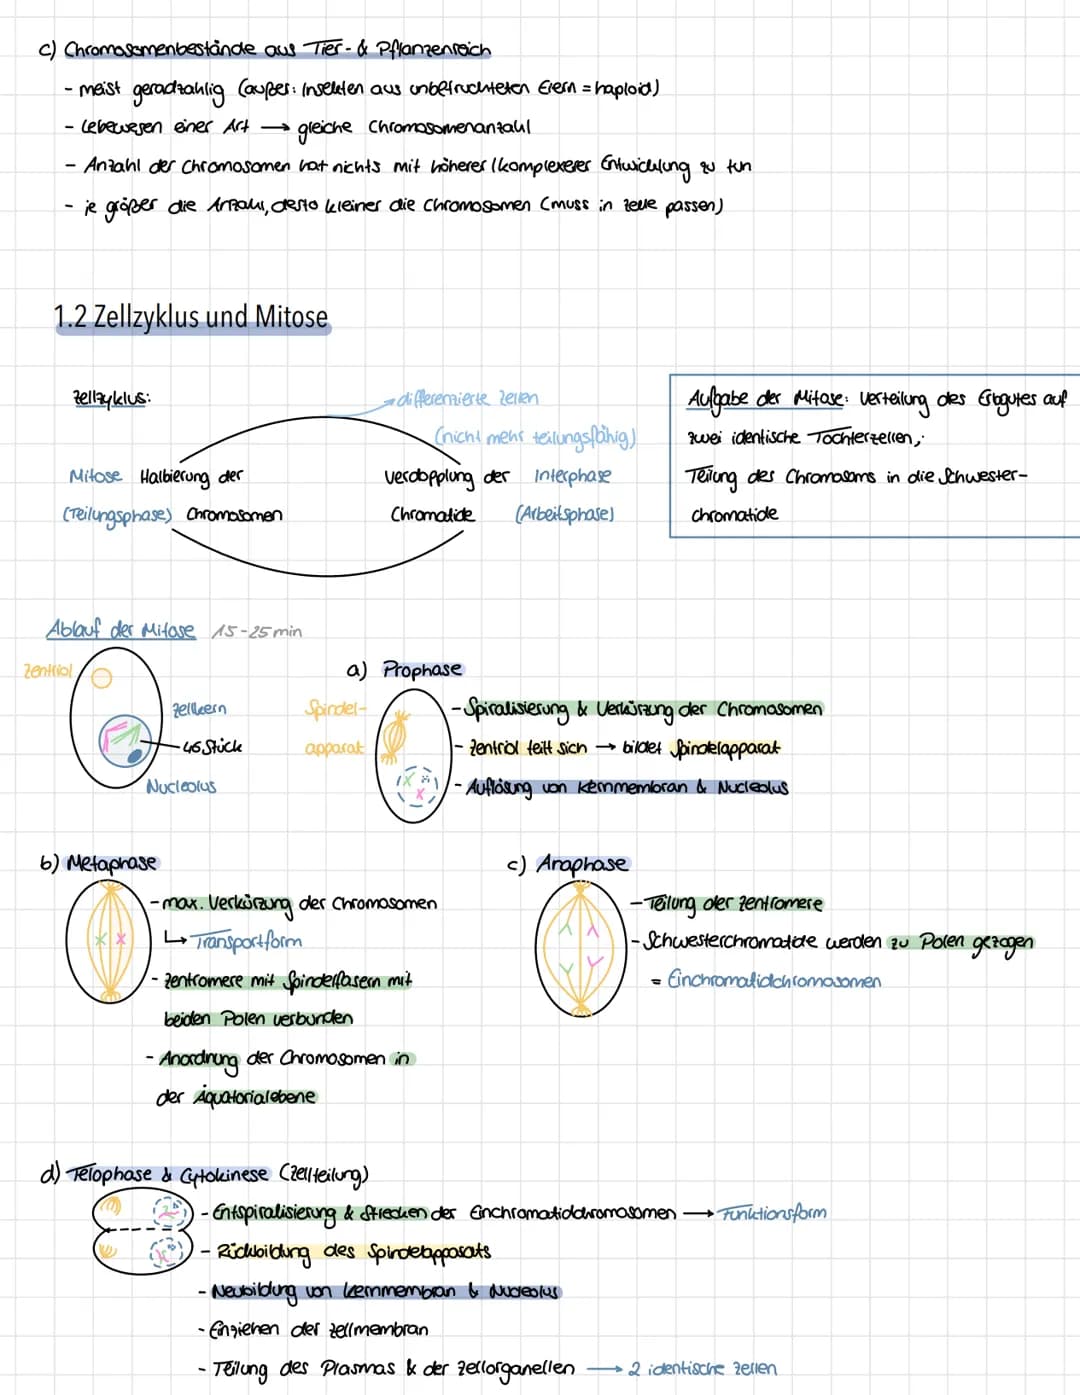 c) Chromosomenbestände aus Tier- & Pflanzenreich
- meist geradzahlig (außer: Insekten aus unbefruchteten Eiern = haploid)
- Lebewesen einer Art → gleiche Chromosomenanzahl
- Anzahl der Chromosomen hat nichts mit höherer/komplexerer Entwicklung zu tun
- je größer die Anzahl, desto kleiner die Chromosomen (muss in Zelle passen)
1.2 Zellzyklus und Mitose
Zellzyklus:
differenzierte Zellen
(nicht mehr teilungsfähig)
Mitose Halbierung der
(Teilungsphase) Chromosomen
Verdopplung der Interphase
Chromatide (Arbeitsphase)
Aufgabe der Mitose: Verteilung des Erbgutes auf
zwei identische Tochterzellen;
Teilung des Chromosoms in die Schwester-
chromatide
Ablauf der Mitose 15-25 min
Zentriol
Zellkern
46 Stück
Nucleolus
a) Prophase
Spindel-
apparat
- Spiralisierung & Verkürzung der Chromosomen
- Zentriol teilt sich → bildet Spindelapparat
- Auflösung von Kernmembran & Nucleolus
b) Metaphase
- max. Verkürzung der Chromosomen
↳ Transportform
- Zentromere mit Spindelfasern mit
beiden Polen verbunden
- Anordnung der Chromosomen in
der Äquatorialebene
c) Anaphase
- Teilung der Zentromere
- Schwesterchromatide werden zu Polen gezogen
= Einchromatidchromosomen
d) Telophase & Cytokinese (Zellteilung)
- Entspiralisierung & Strecken der Einchromatidchromosomen → Funktionsform
- Rückbildung des Spindelapparats
- Neubildung von Kernmembran & Nucleolus
- Einziehen der Zellmembran
- Teilung des Plasmas & der Zellorganellen → 2 identische Zellen